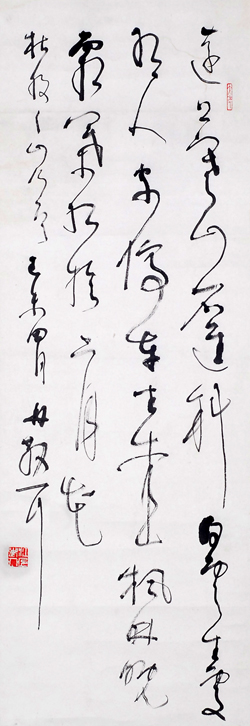 遠上寒山石逕斜白雲生處
有人家停車坐愛楓林晚
霜葉紅於二月花
杜牧之山行 未 月 林散耳